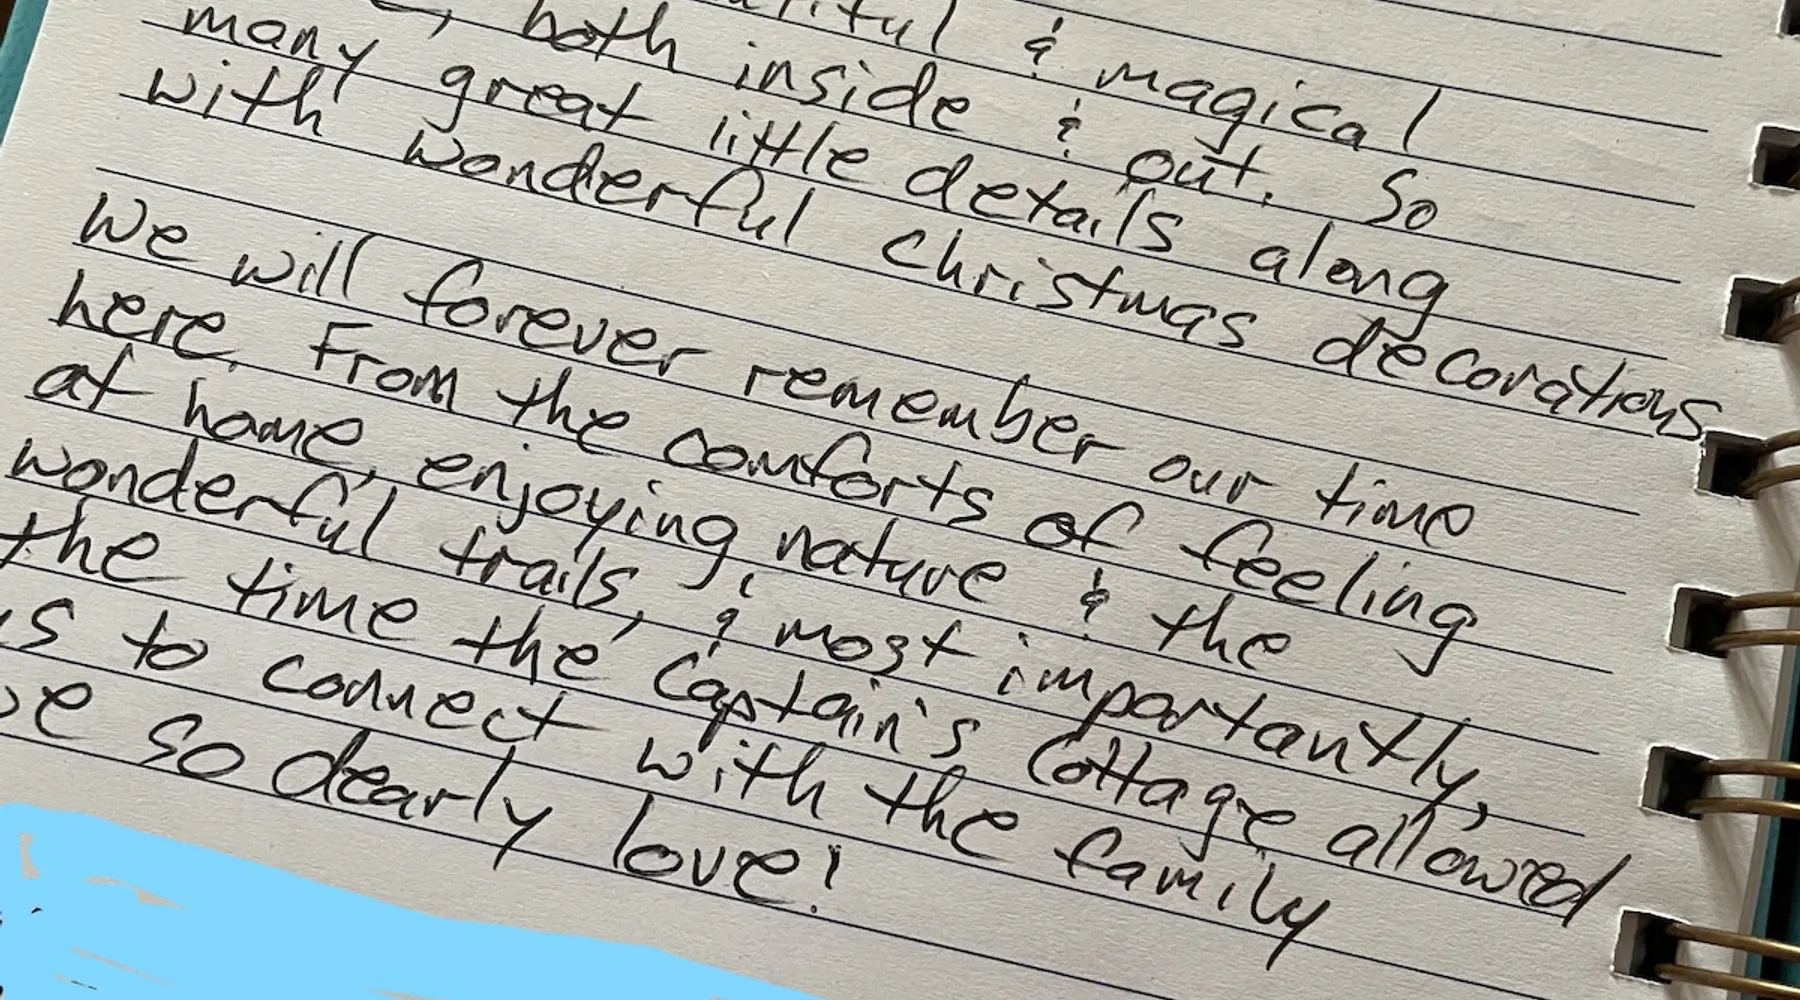 & magical
, both inside & out. So
many great little details along
with wonderful Christmas decorations
We will forever remember our time
here. From the comforts of feeling
at home, enjoying nature & the
wonderful trails, & most importantly,
the time the Captain's Cottage allowed
to connect with the family
so dearly love!